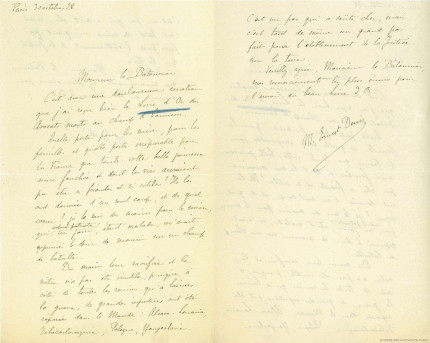 Paris 31 octobre 28
Monsieur le Bâtonnier
C'est avec une douloureuse émotion
que j'ai reçu hier le Livre d'Or des
Avocats morts au champ d'honneur.
Quelle perte pour les mères, pour les
familles et quelle perte irréparable pour
la France que toute cette belle jeunesse
fauchée et dont la vie
été si féconde et si utile ! Ils l'a
ont donnée d'un seul coup, et de quel
cœur ! je le sais du moins pour le
patriote
qui, étant malade, m'avait
exprimé le désir de mourir sur un champ
de bataille.
Du moins leur sacrifice et le
nôtre n'a pas été inutile, puisque, à
côté de toutes les ruines qui a laissées
la guerre, de grandes injustices ont été
réparées dans le Monde : Alsace-Lorraine,
Tchécoslovaquie, Pologne, Yougoslavie.
C'est un pas qui a coûté cher, mais
c'est tout de même un grand pas
fait pour l'établissement de la justice
sur la terre.
Veuillez agréer, Monsieur le Bâtonnier,
mes remerciements les plus émus pour
l'envoi du Livre d'Or.
M. Ernest